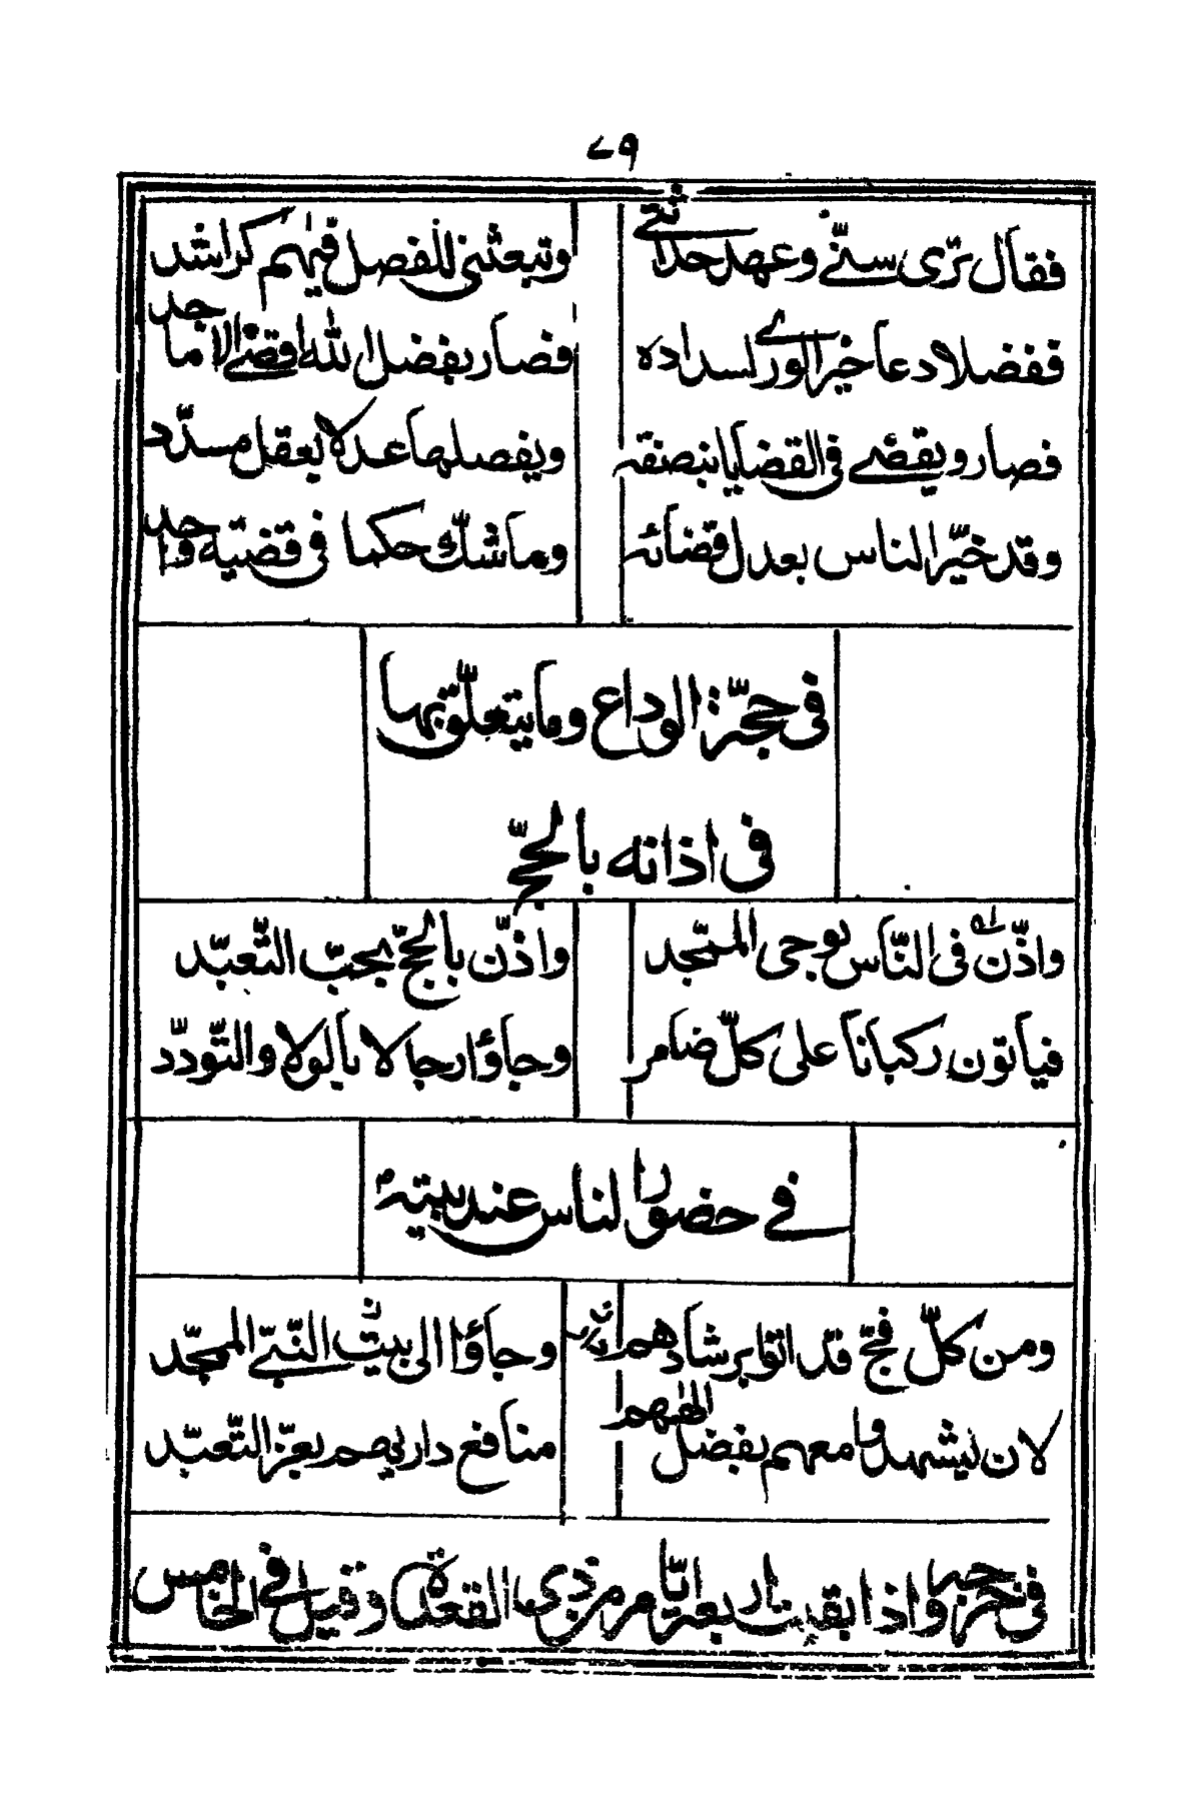 ٧٩
فقال ترى سنّي وعهد حداثتي وتبعثني للفصل فيهم كراشد
ففضلا دعا خير الورى لسداده فصار بفضل الله اقضى الاماجد
فصار ويقضي في القضايا بنصفة ويفصلها عدلا بعقل مسدّد
وقد خيّر الناس بعدل قضائه وما شك حكما في قضية واحد
في حجّة الوداع وما يتعلّق بها
في اذانه بالحجّ
واذّن في النّاس نوحى الممجّد واذّن بالحجّ بحبّ التّعبّد
فياتون ركبانا على كلّ ضامر وجاؤا رجالا بالولا والتّودّد
في حضور الناس عند بيته
ومن كلّ فجّ قد اتوا برشادهم وجاؤا الى بيت النّبيّ الممجّد
لان يشهدوا معهم بفضل الههم منافع داريهم بعزّ التّعبّد
في خرجه واذا بقيت اربعة ايّام من ذي القعدة وقيل في الخامس